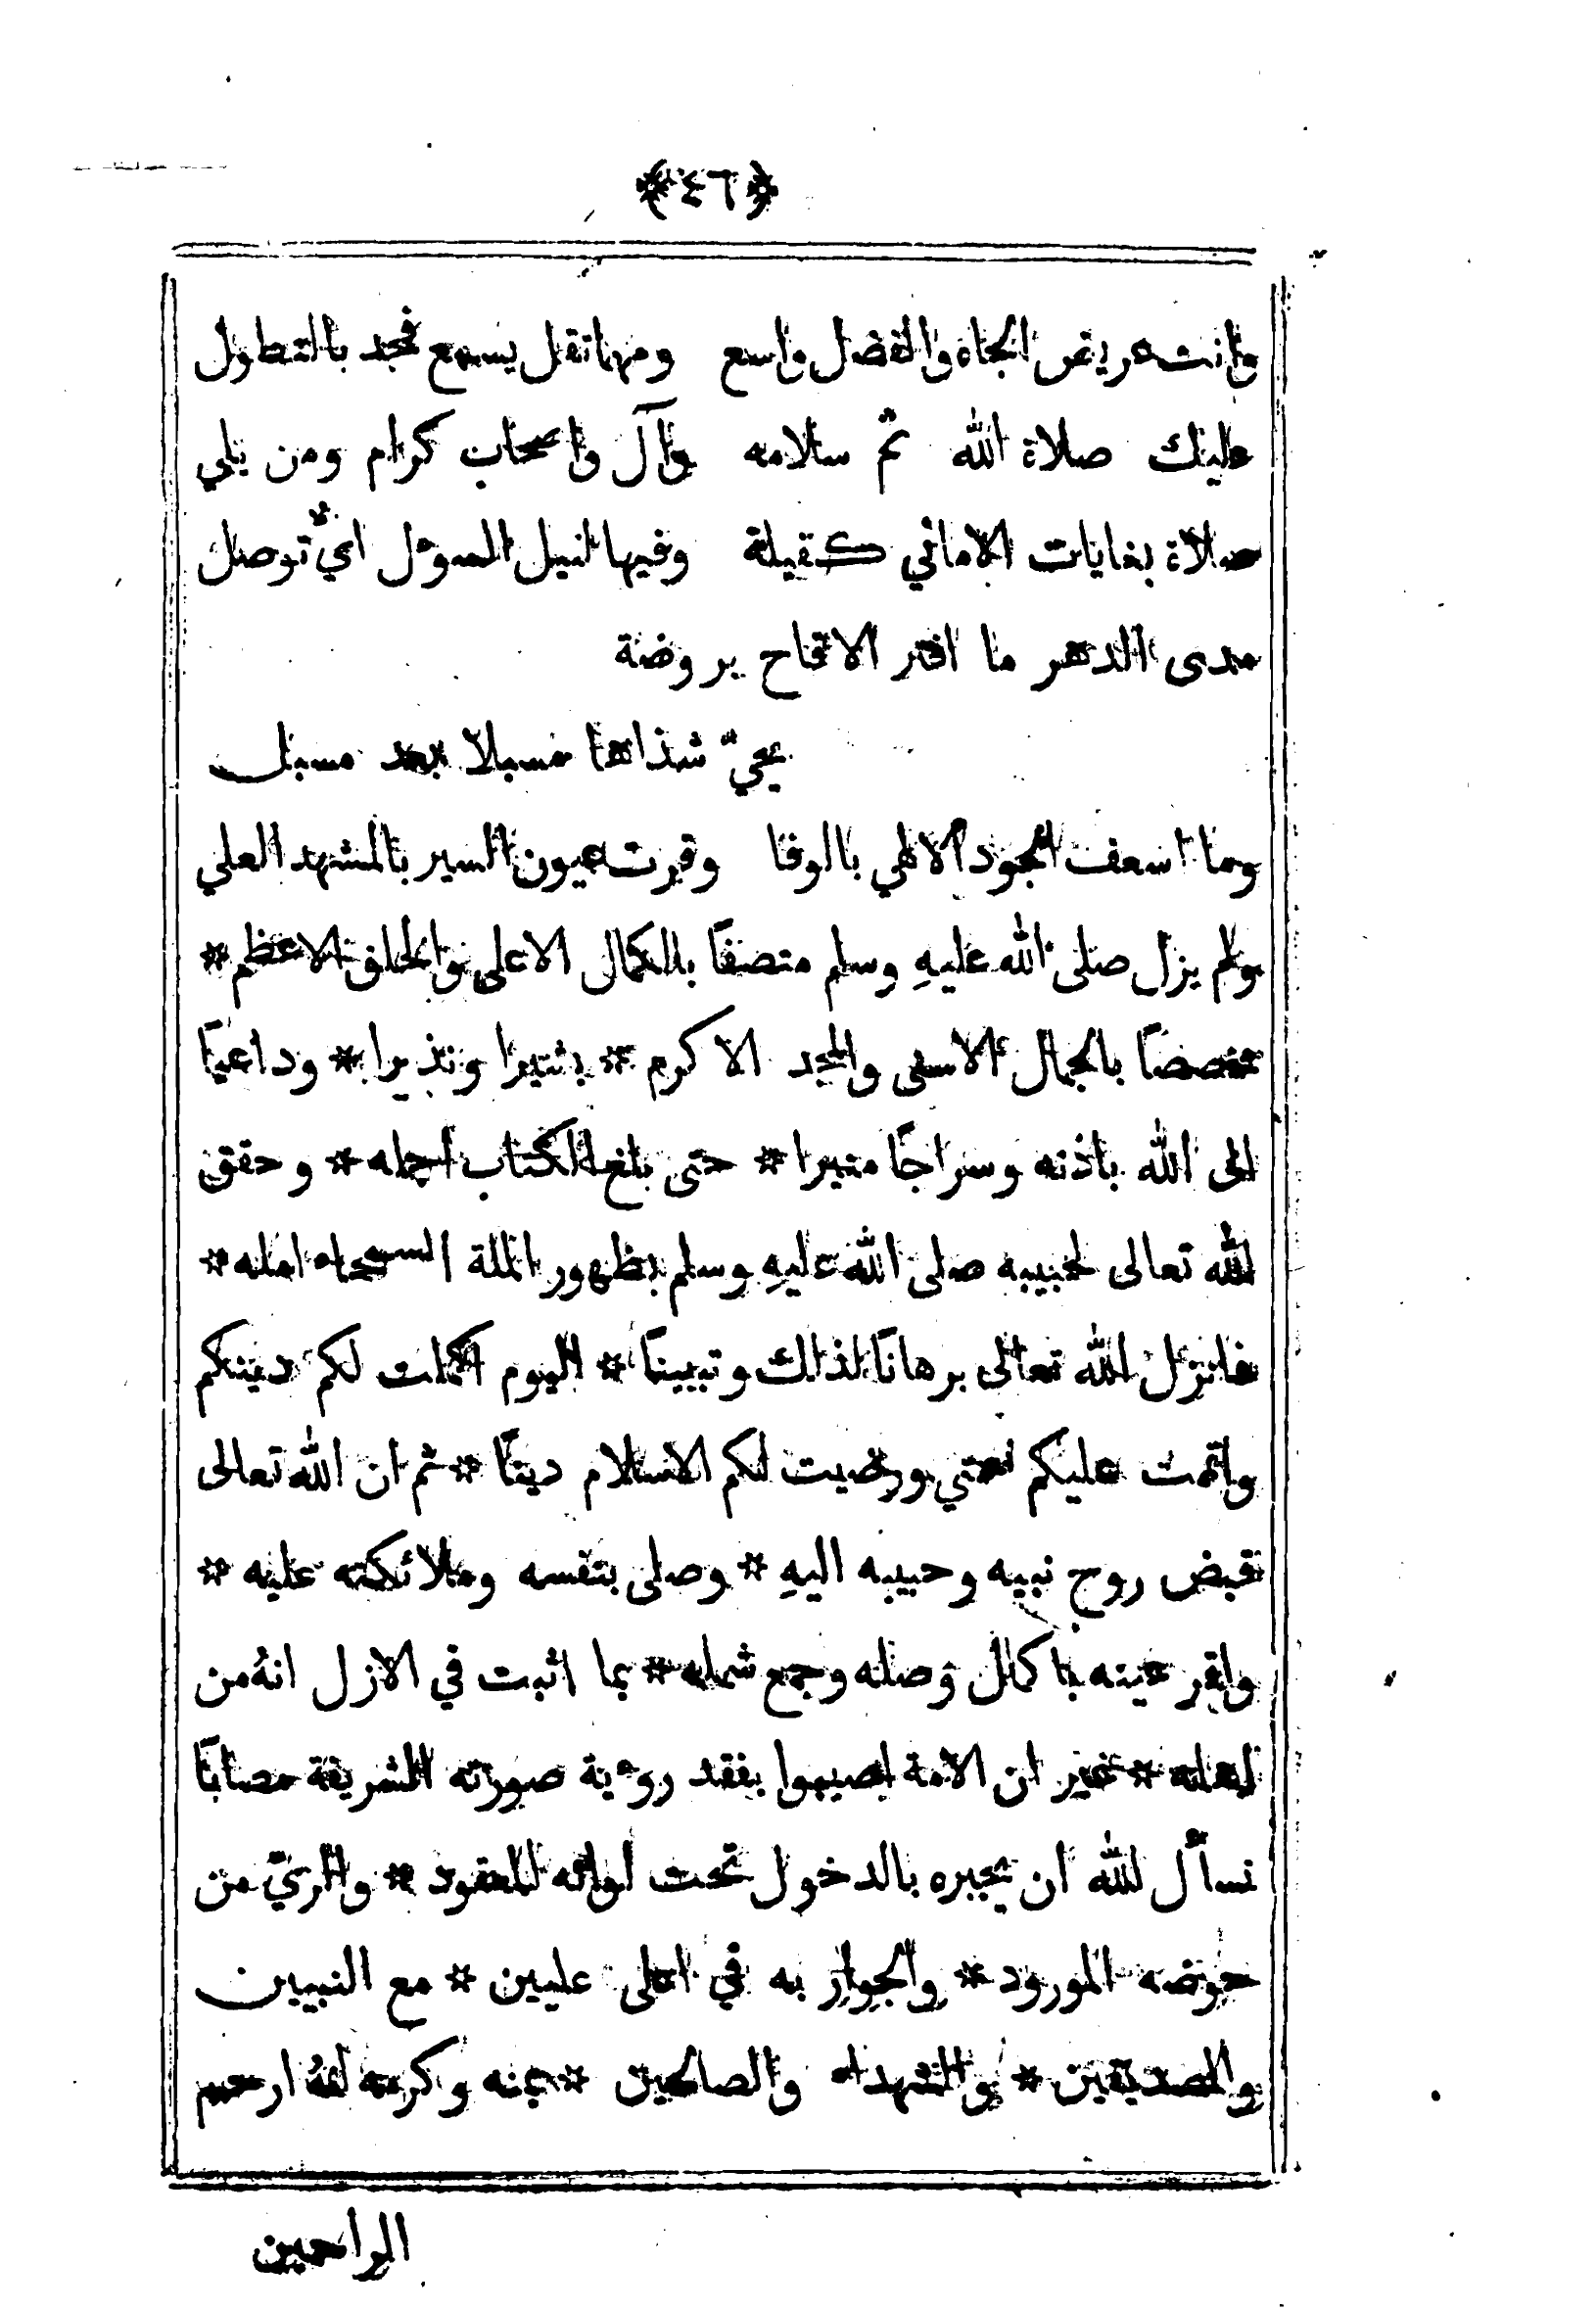 ﴿٤٦﴾
وانت عريض الجاه والفضل واسع ومهما تقل يسمع فجد بالتطول
عليك صلاة الله ثم سلامه وآل واصحاب كرام ومن يلي
صلاة بغايات الاماني كفيلة وفيها لنيل السوءل ايّ توصل
مدى الدهر ما افتر الاقاح بروضة
يحيّ شذاها مسبلا بعد مسبل
وما اسعف الجود الالهي بالوفا وقرت عيون السير بالمشهد العلي
ولم يزل صلى الله عليهِ وسلم متصفًا بالكمال الاعلى والخلق الاعظم *
مخصصًا بالجمال الاسنى والمجد الاكرم * بشيرا ونذيرا * وداعيًا
الى الله باذنه وسراجًا منيرا * حتى بلغ الكتاب اجله * وحقق
الله تعالى لحبيبه صلى الله عليهِ وسلم بظهور الملة السمحاء امله *
فانزل الله تعالى برهانًا لذلك وتبيينًا * اليوم اكملت لكم دينكم
واتممت عليكم نعمتي ورضيت لكم الاسلام دينًا * ثم ان الله تعالى
قبض روح نبيه وحبيبه اليهِ * وصلى بنفسه وملائكته عليه *
واقر عينه باكمال وصله وجمع شمله * بما اثبت في الازل انهُ من
اهله * غير ان الامة اصيبوا بفقد روءية صورته الشريفة مصابًا
نسأل الله ان يجبره بالدخول تحت لوائه المعقود * والريّ من
حوضه المورود * والجوار به في اعلى عليين * مع النبيين
والصديقين * والشهداء والصالحين * بمنه وكرمه انهُ ارحم
الراحمين